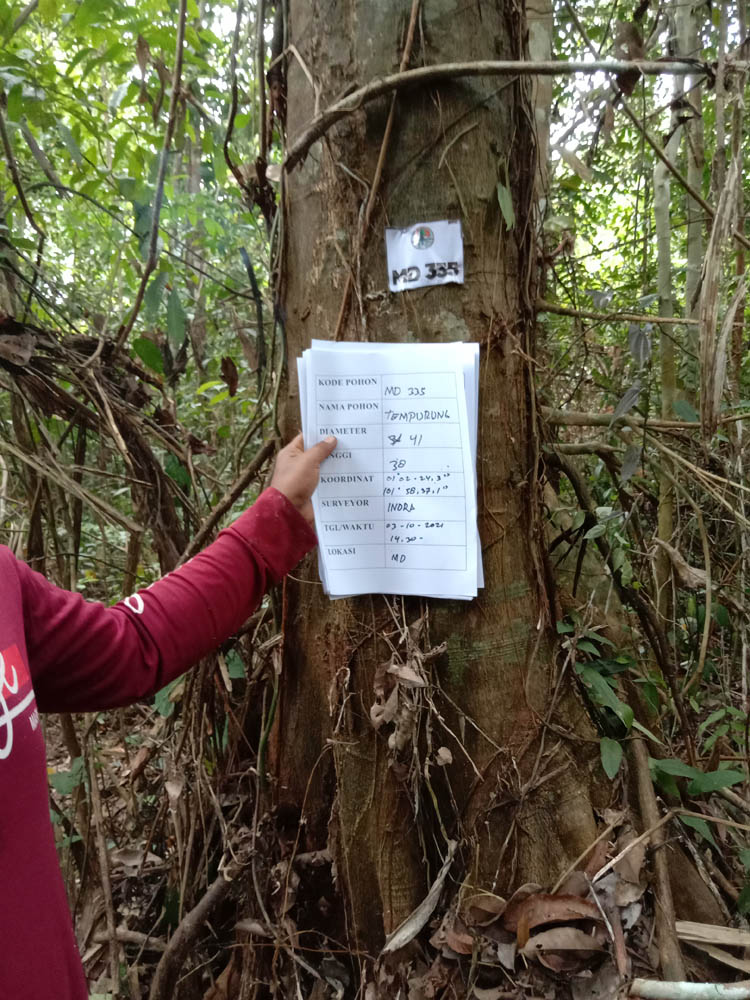 MD 335
KODE POHON MD 335
NAMA POHON TEMPURUNG
DIAMETER 41
NGGI 38
KOORDINAT 01° 02' 24,3"
101° 58' 37,1"
SURVEYOR INDRA
TGL/WAKTU 03-10-2021
14.30-
LOKASI MD